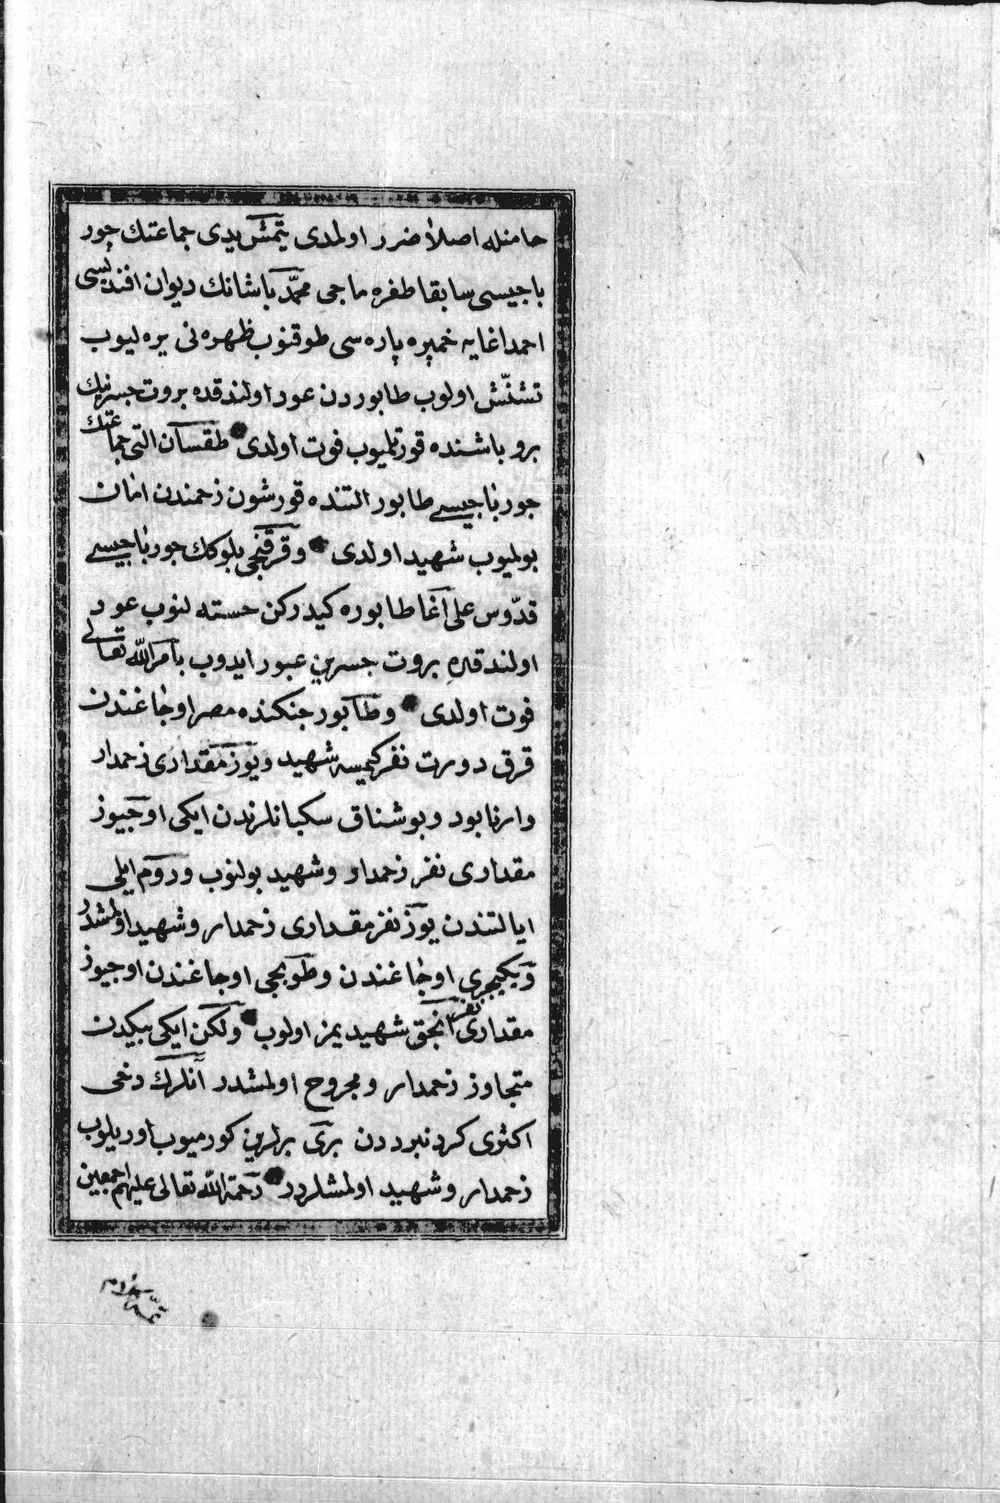 حامنله اصلا ضرر اولمدى يتمش يدى جماعتك چور
باجيسى سابقا طغره ماجى محمّد پاشانك ديوان افنديسى
احمد اغايه خمپره پاره سى طوقنوب ظهره نى يره ليوب
تشنّش اولوب طابوردن عود اولندقده بروت جسرينك
برو باشنده قورتلميوب فوت اولدى طقسان التى جماعتك
جورباجيسى طابور التنده قورشون زخمندن امان
بولميوب شهيد اولدى وقرقنجى بلوكك جورباجيسى
قدّوس على آغا طابوره كيدركن خسته لنوب عود
اولندقده بروت جسرين عبور ايدوب بامر الله تعالى
فوت اولدى وطابور جنكنده مصر اوجاغندن
قرق دورت نفر كيمسه شهيد ويوز مقدارى زخمدار
وارنابود وبوشناق سكبانلرندن ايكى اوچيوز
مقدارى نفر زخمدار وشهيد بولنوب وروم ايلى
ايالتندن يوز نفر مقدارى زخمدار وشهيد اولمشدر
ويكيچرى اوجاغندن وطوبجى اوجاغندن اوچيوز
مقدارى نفر انجق شهيديمز اولوب ولكن ايكى بيكدن
متجاوز زخمدار ومجروح اولمشدر آنلرك دخى
اكثرى كرد نبرددن برى برلرين كورميوب اوريلوب
زخمدار وشهيد اولمشلردر رحمة الله تعالى عليهم اجمعين